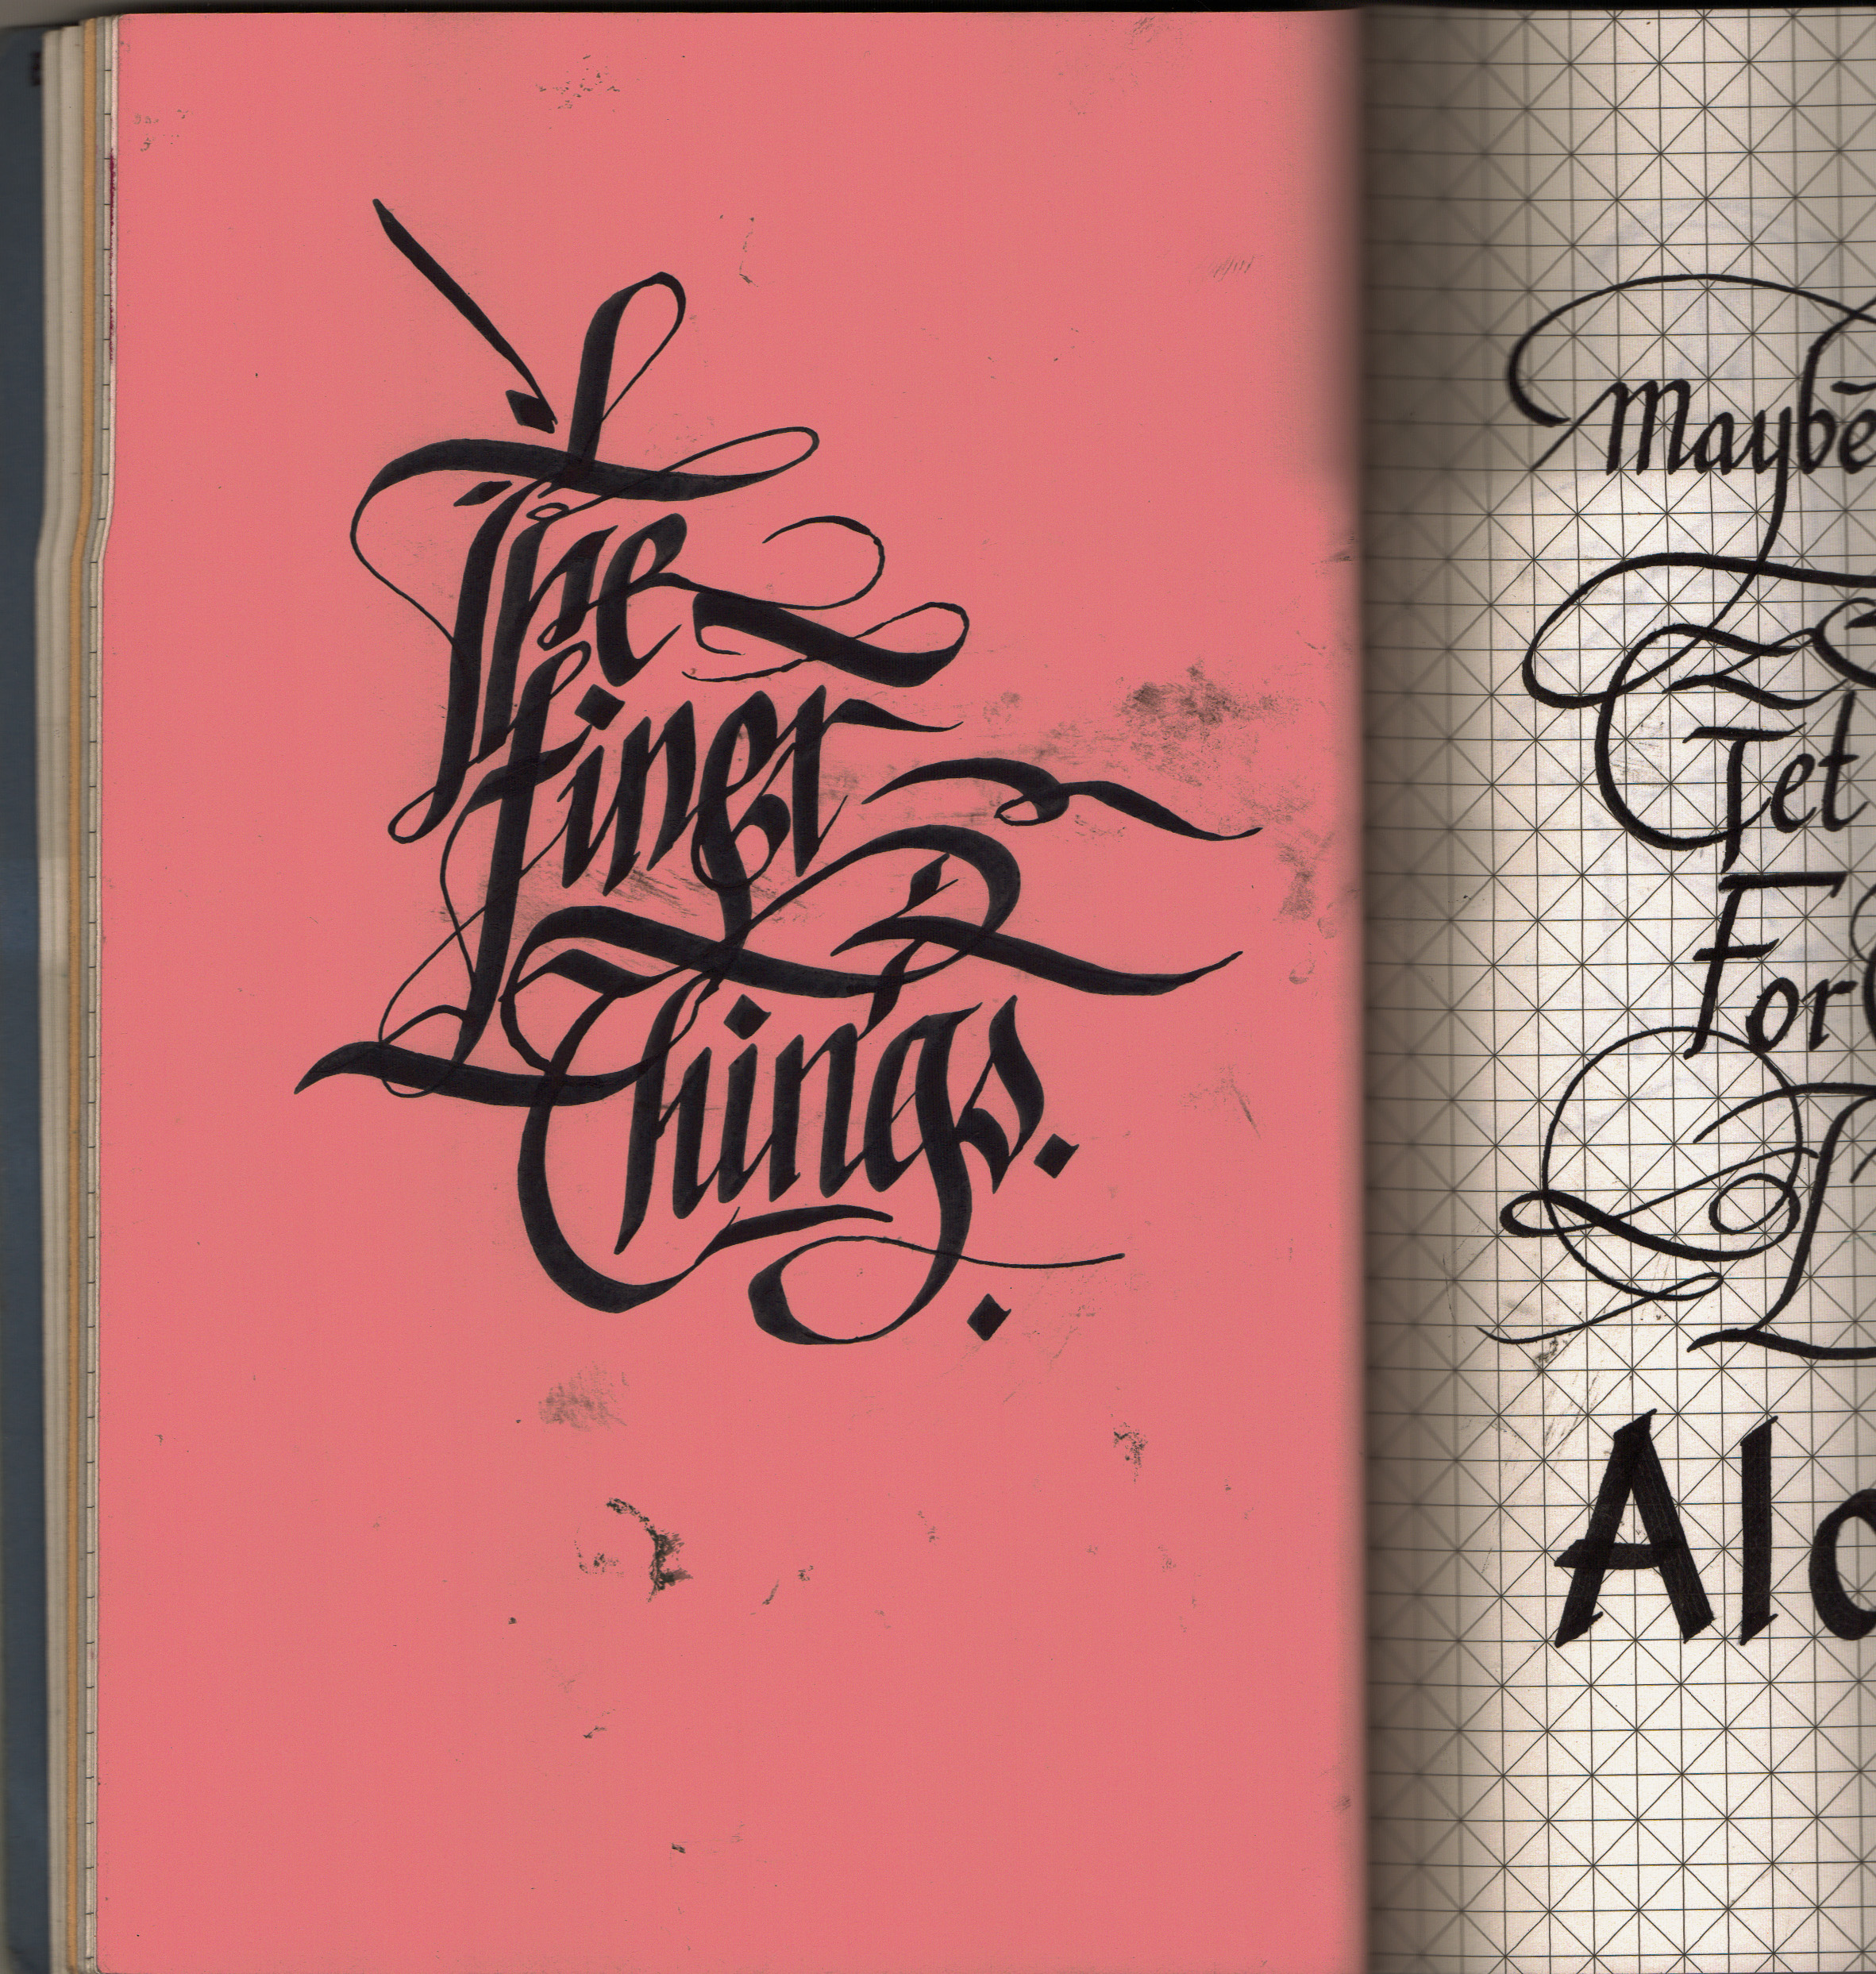 The
finer
Things.
Maybe
Get
For